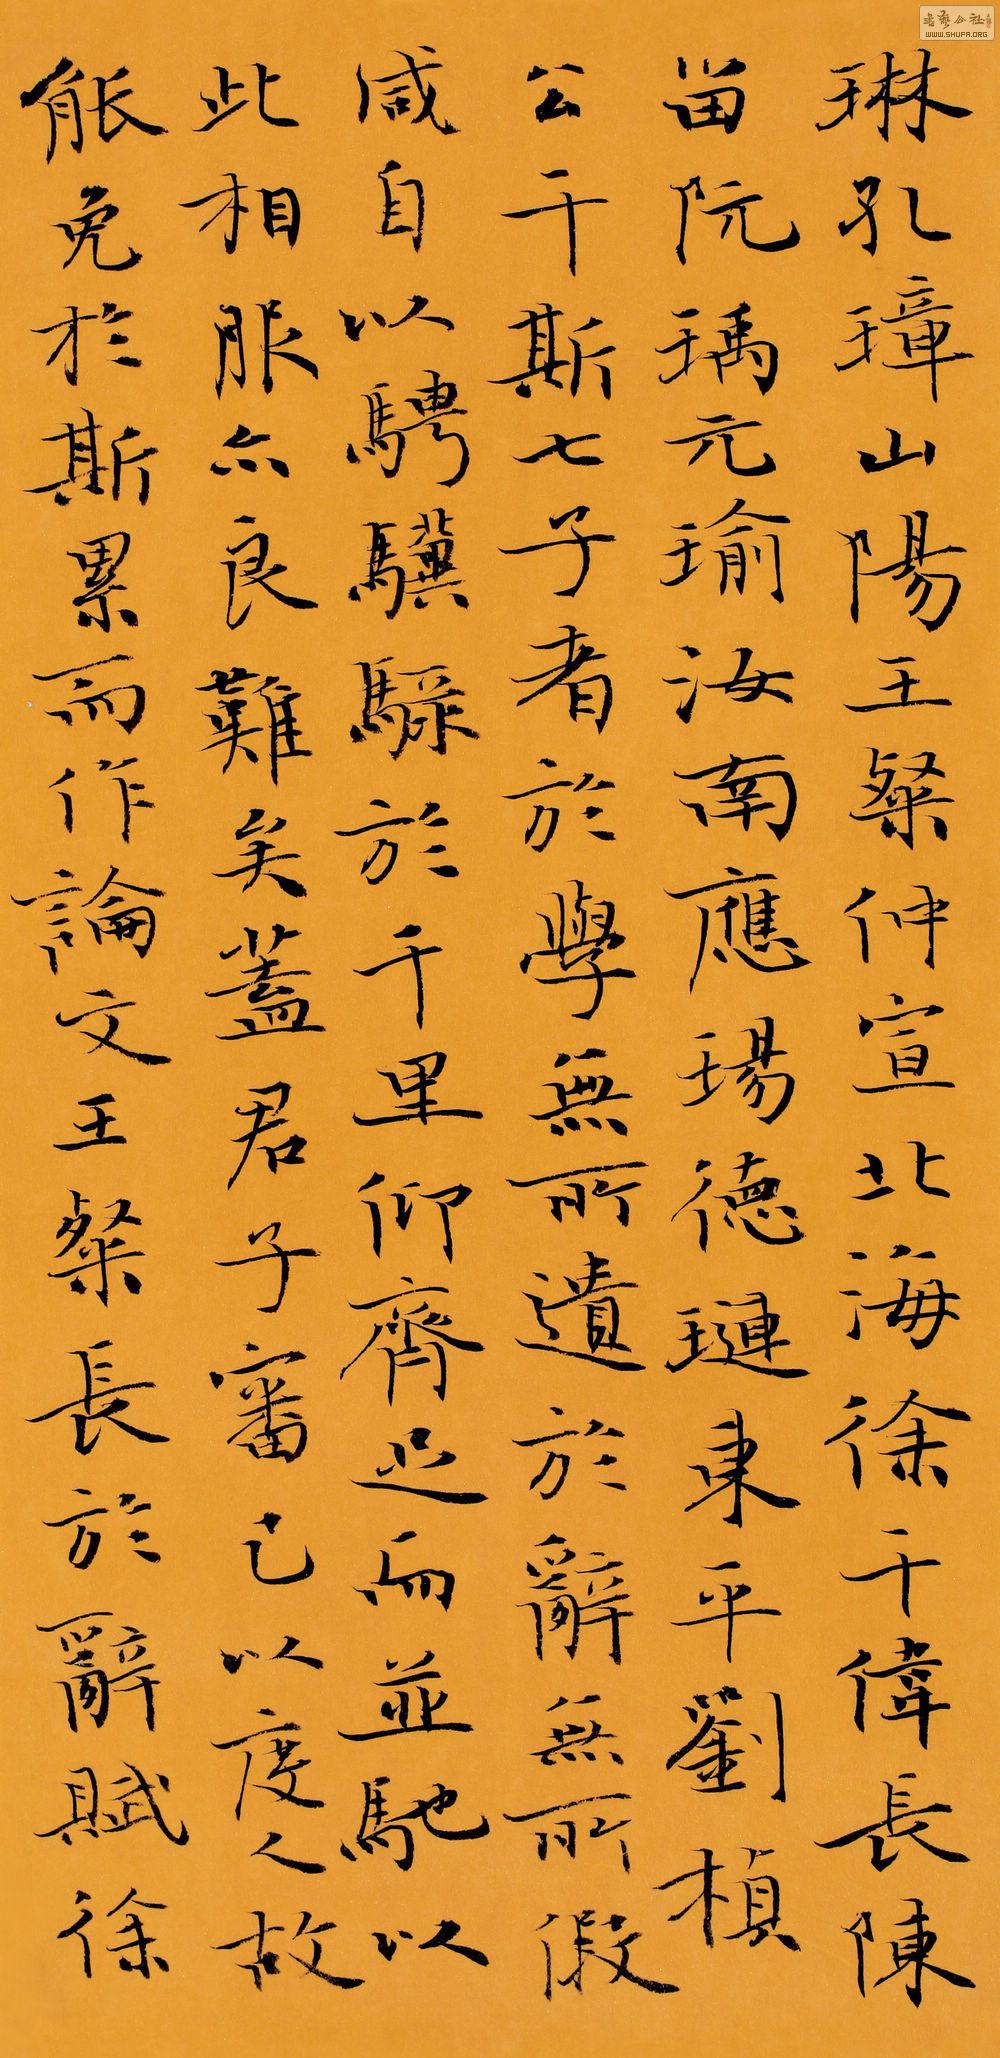 琳孔璋山陽王粲仲宣北海徐干偉長陳
留阮瑀元瑜汝南應瑒德璉東平劉楨
公干斯七子者於學無所遺於辭無所假
咸自以騁驥騄於千里仰齊足而並馳以
此相服亦良難矣蓋君子審己以度人故
能免於斯累而作論文王粲長於辭賦徐
WWW.SHUFA.ORG